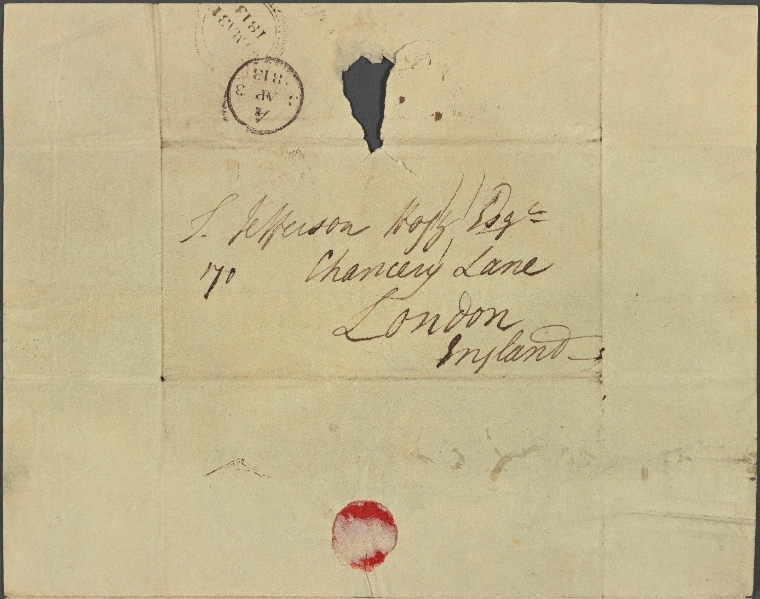 MA31
1813
A
AP 3
813
T. Jefferson Hogg Esqre
170 Chancery Lane
London
England